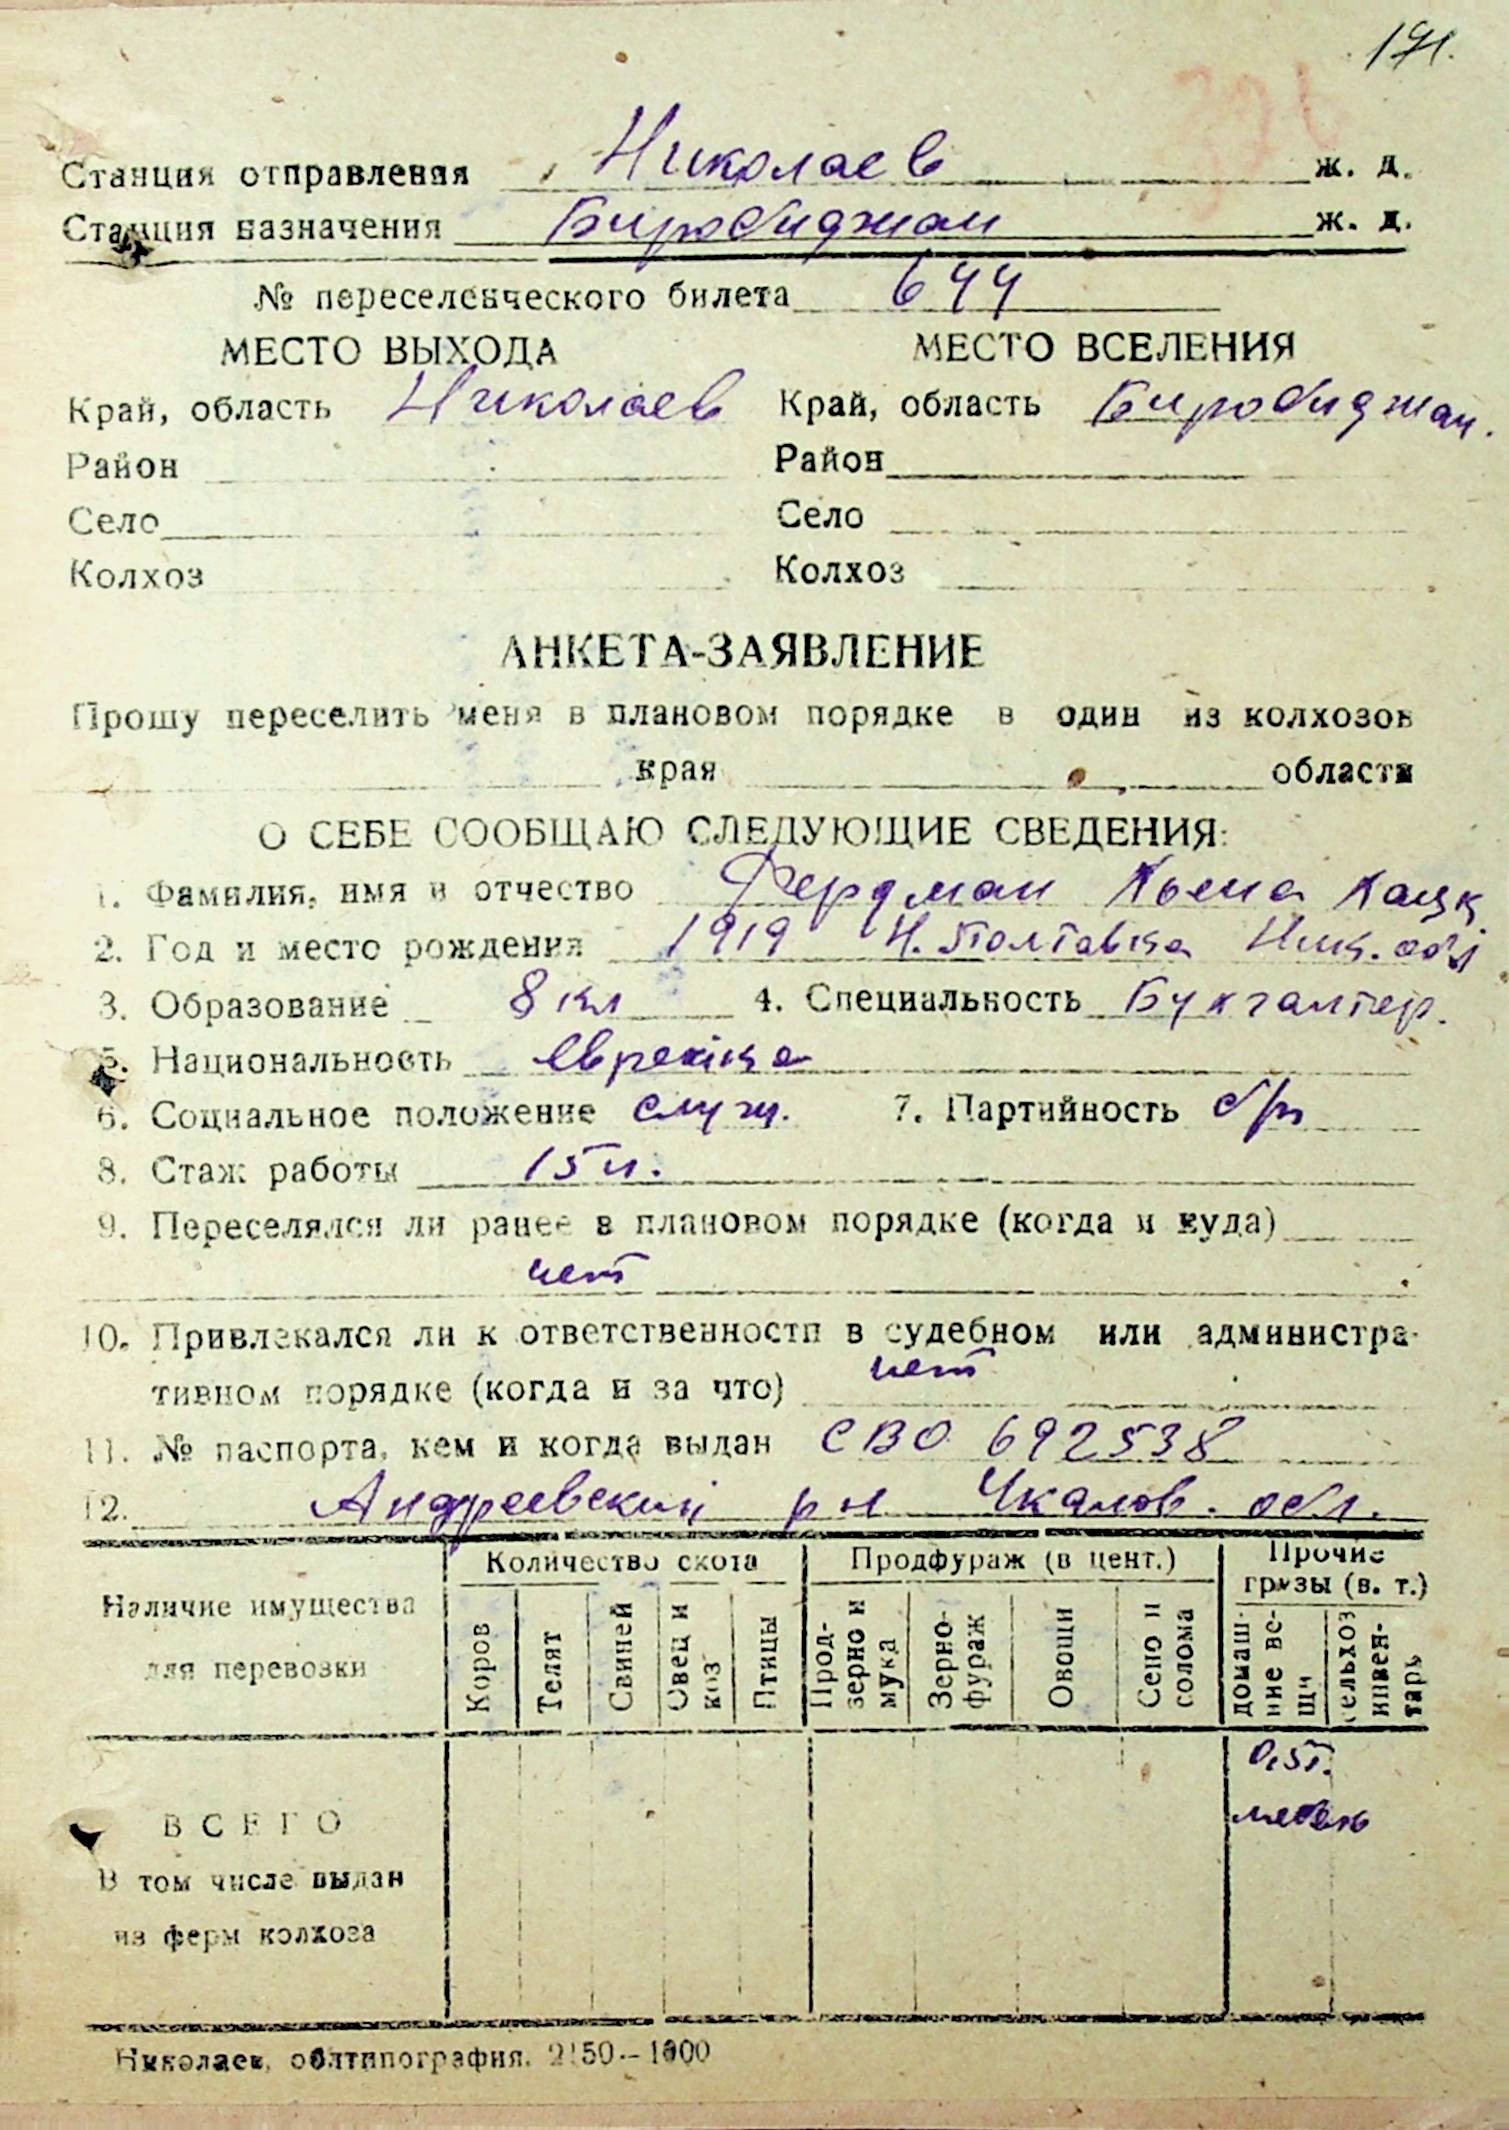 191.
Станция отправления Николаев ж. д.
Станция назначения Биробиджан ж. д.
№ переселенческого билета 644
МЕСТО ВЫХОДА МЕСТО ВСЕЛЕНИЯ
Край, область Николаев Край, область Биробиджан.
Район Район
Село Село
Колхоз Колхоз
АНКЕТА-ЗАЯВЛЕНИЕ
Прошу переселить меня в плановом порядке в один из колхозов
края области
О СЕБЕ СООБЩАЮ СЛЕДУЮЩИЕ СВЕДЕНИЯ:
1. Фамилия, имя и отчество Фердман
2. Год и место рождения 1919 Н. Полтавка Ник. обл
3. Образование 8 кл 4. Специальность Бухгалтер.
5. Национальность еврейка
6. Социальное положение служ. 7. Партийность б/п
8. Стаж работы 15 л.
9. Переселялся ли ранее в плановом порядке (когда и куда)
нет
10. Привлекался ли к ответственности в судебном или администра-
тивном порядке (когда и за что) нет
11. № паспорта, кем и когда выдан СВО 692538
12. Андреевский рн Чкалов. обл.
Наличие имущества для перевозки
Количество скота Продфураж (в цент.) Прочие грузы (в. т.)
Коров Телят Свиней Овец и коз Птицы Прод-зерно и мука Зерно-фураж Овощи Сено и солома домаш-ние ве-щи сельхоз инвен-тарь
0,5т.
мебель
ВСЕГО
В том числе выдан
из ферм колхоза
Николаев, облтипография. 2150—1000